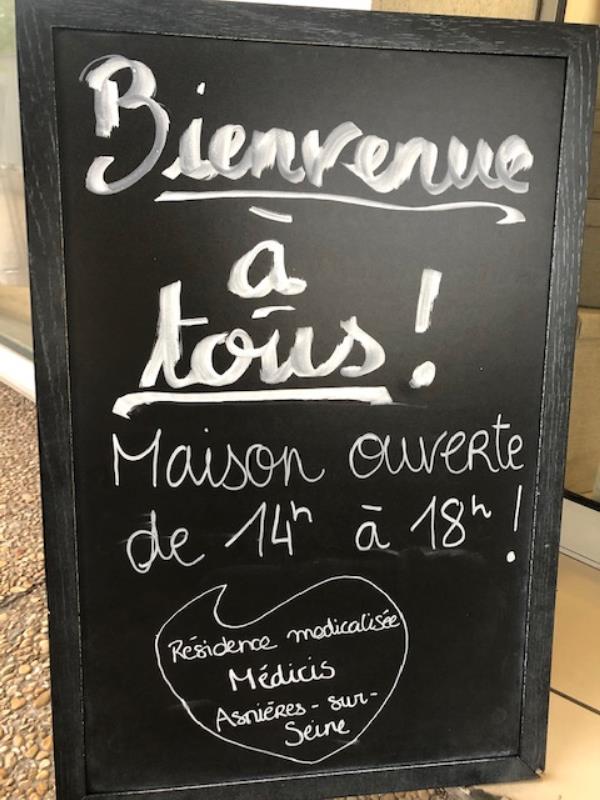 Bienvenue
à
tous !
Maison ouverte
de 14h à 18h !
Résidence medicalisée
Médicis
Asnières-sur-
Seine